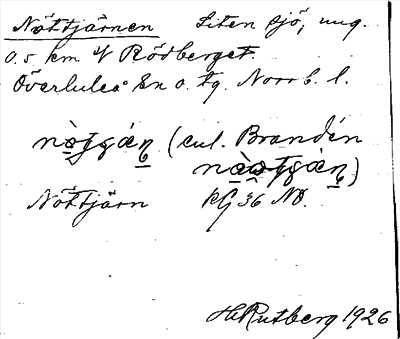 Nöttjärnen Liten sjö, ung.
0.5 km V Rödberget.
Överluleå sn o. tg. Norrb. l.
(enl. Brandén
Nöttjärn KG 36 NO.
H. Rutberg 1926